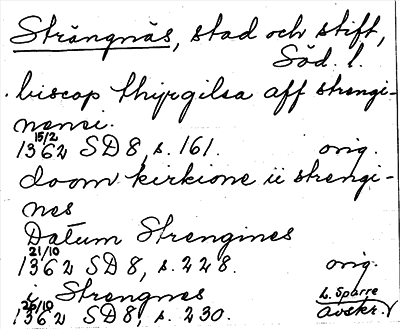 Strängnäs, stad och stift,
Söd. l.
biscop thyrgilsa aff strengi-
nensi.
15/2
1362 SD8, s. 161. orig.
doom kirkione ii strengi-
nes
Datum Strengines
21/10
1362 SD8, s. 228. orig.
i Strengnes L. Sparre
25/10
1362 SD8, s. 230. avskr.